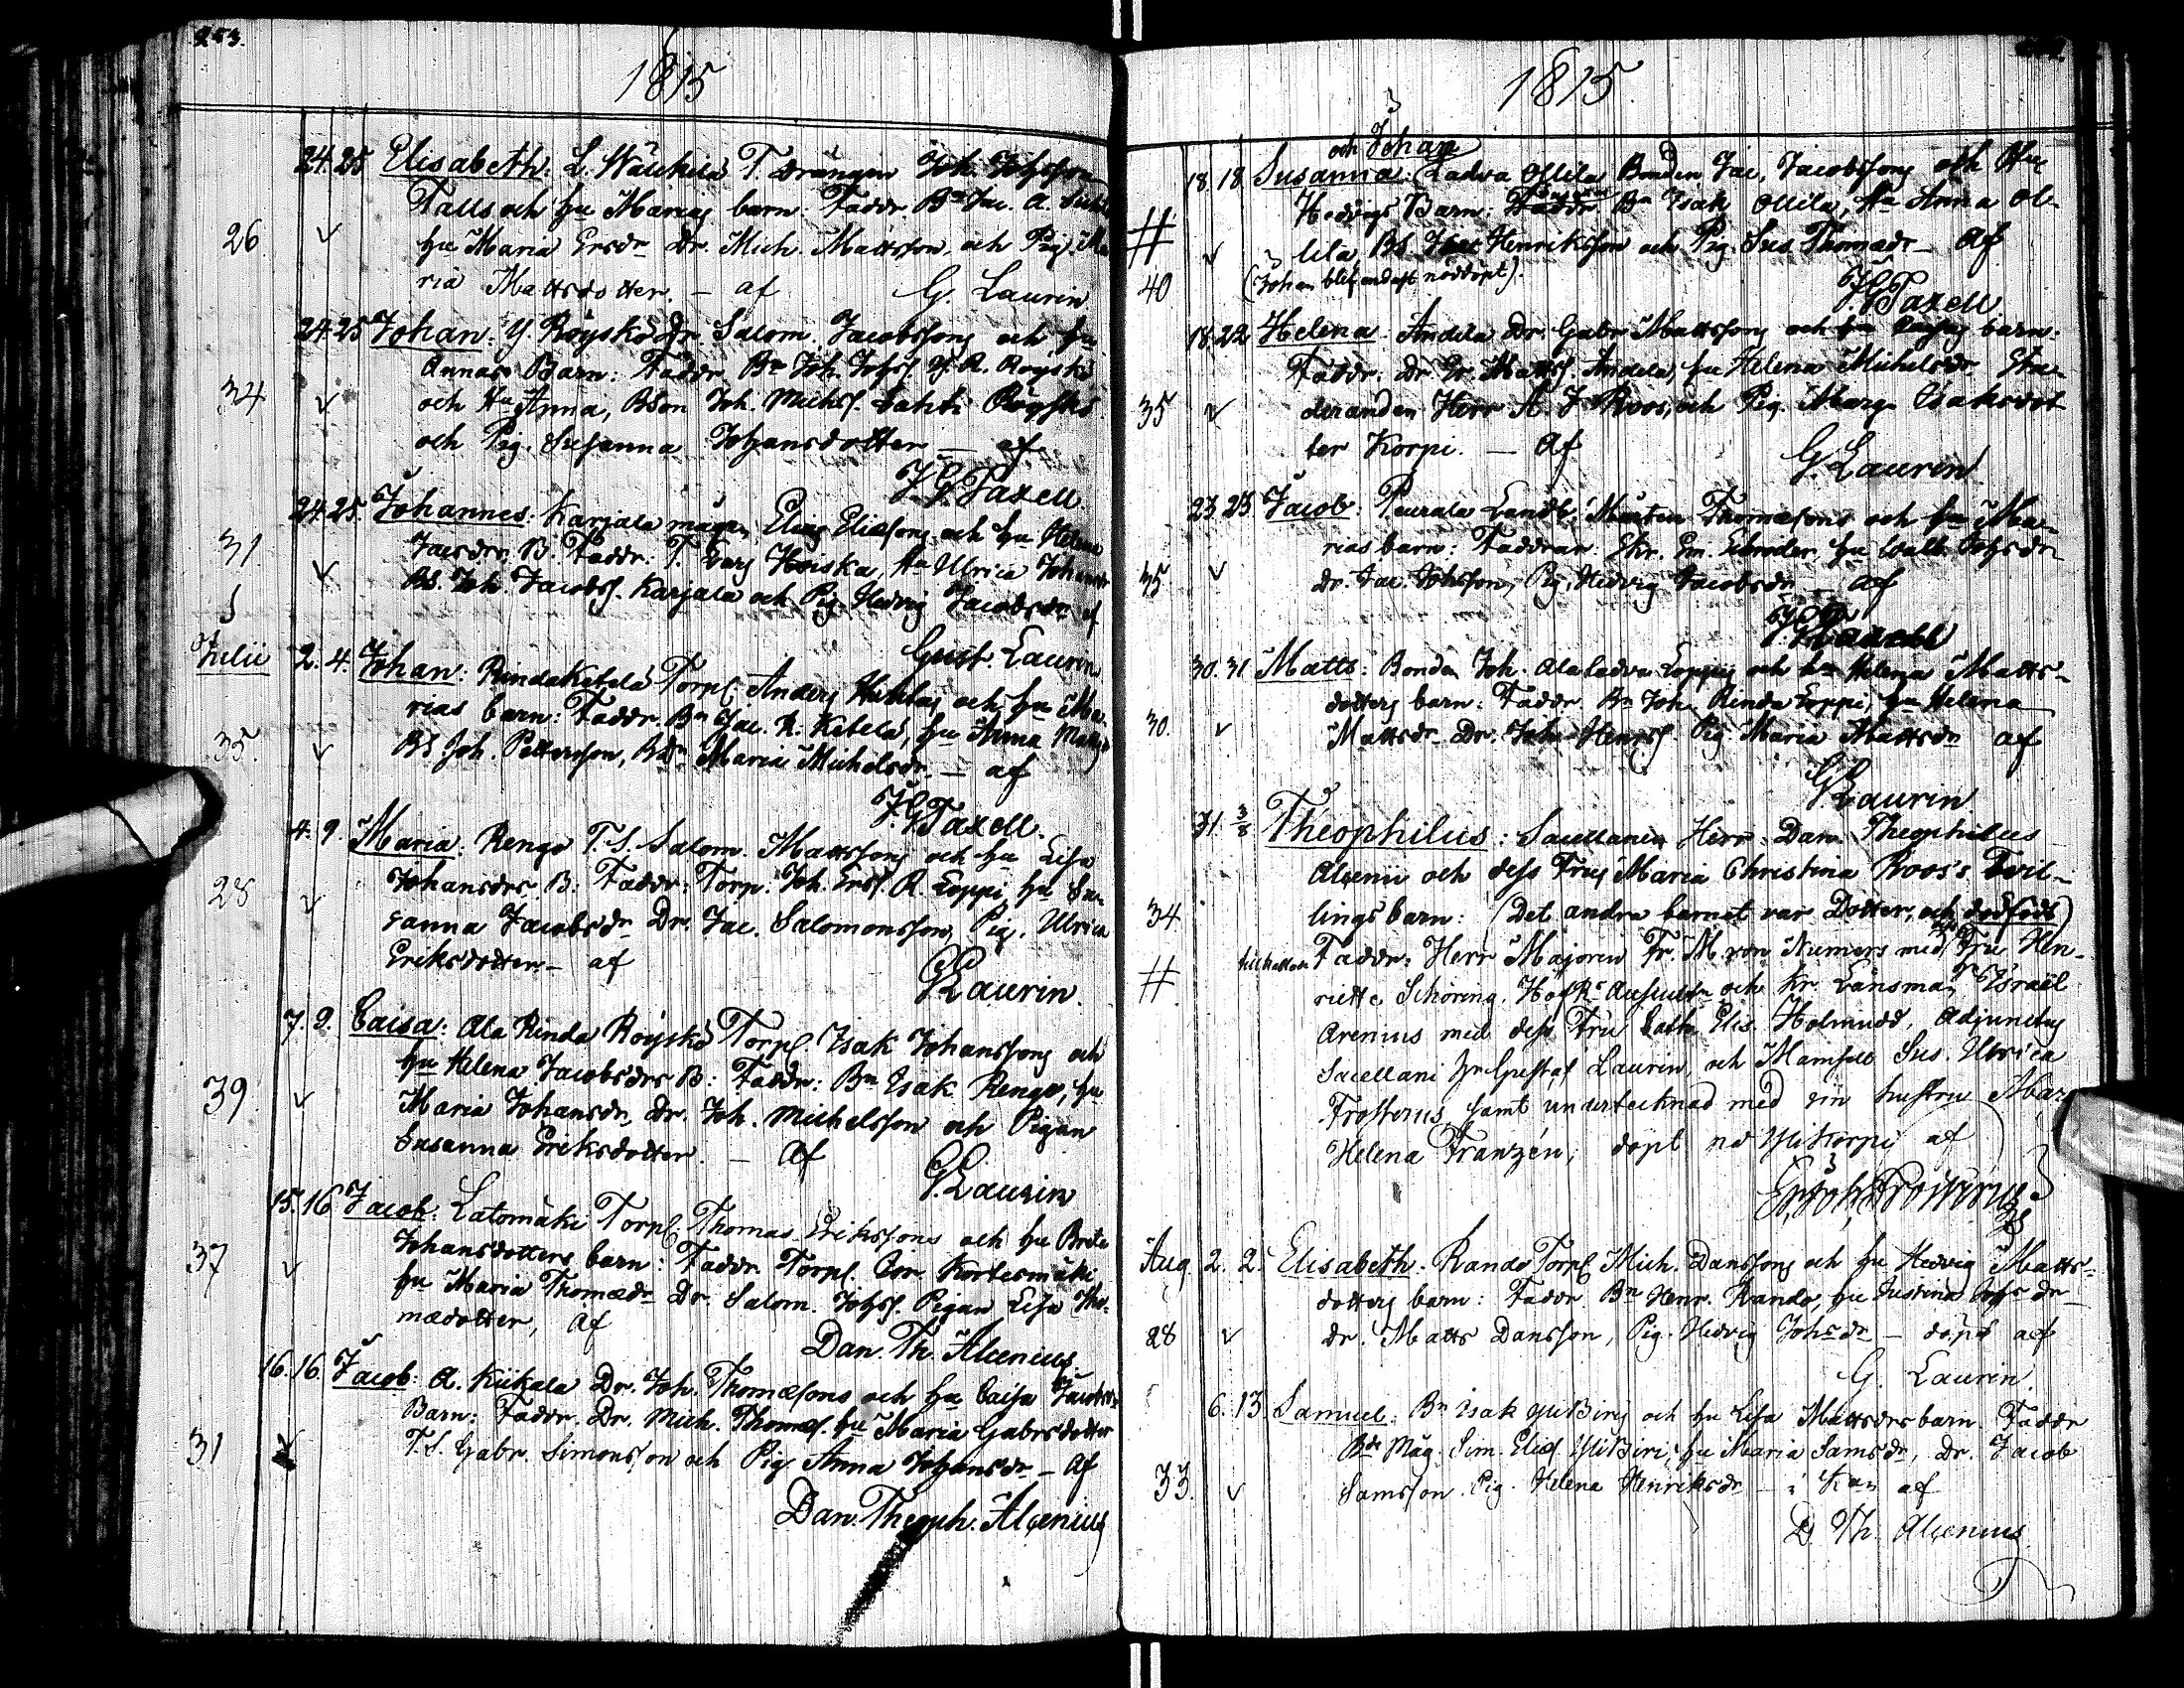 253.
1815
24. 25 Elisabeth: L. Wäckilä T. drängen Joh. Johsson
Talls och hu Marias barn: Faddr. Bn Jac. A.
26 hu Maria Ersdr Dr. Mich. Mattsson, och Pig. Ma
ria Mattsdotter. – af G. Laurin
24. 25 Johan: Y. Röyskö Dr. Salom. Jacobssons och hu
Annas Barn: Faddr. Bn Joh. Johss. Y. R. Röyskö
34 och Hu Anna, Bson Joh. Michss. Lahti Röyskö
och Pig. Susanna Johansdotter – af
J. G. Taxell.
24. 25. Johannes: Karjala mågen Elias Eliæsons och hu Helena
31. Jacsdrs B. Faddr: T. Varg Hoiska, Hu Ulrica Johansdr
BS. Joh. Jacobss. Karjala och Pig. Hedvig Jacobsdr af
Gust. Laurin
Julii 2. 4. Johan: Rindaketelä Torp. Anders Huhtas och hu Ma-
rias barn: Faddr. Bn Jac. R. Ketelä, hu Anna Mattsd
35. BS Joh. Pettersson, BDr Maria Michelsdr – af
J. G. Taxell.
4. 9. Maria: Rengo T.S. Salom. Mattssons och hu Lisa
Johansdrs B: Faddr: Torp. Joh. Erss. R. Loppi hu Su-
28 sanna Jacobsdr Dr. Jac. Salomonsson, Pig. Ulrica
Eriksdotter – af
G Laurin.
7. 9. Caisa: Ala Rinda Röyskö Torp. Isak Johanssons och
hu Helena Jacobsdrs B: Faddr: Bn Isak Rengo, hu
39. Maria Johansdr, Dr. Joh. Michelsson och Pigan
Susanna Eriksdotter. – Af
G. Laurin
15. 16 Jacob: Latomäki Torp. Thomas Erikssons och hu Brita
Johansdotters barn: Faddr. Torp. Kortesmäki
37 hu Maria Thomædr Dr. Salom. Johss. Pigan Lisa Tho-
mædotter, Af
Dan. Th. Alcenius.
16. 16. Jacob: A. Kukala Dr. Joh. Thomæsons och hu Caisa Jacobsdrs
Barn: Faddr. Dr. Mich. Thomæs. hu Maria Gabrsdotter
31 T.S. Gabr. Simonsson och Pig Anna Johansdr – Af
Dan. Theoph. Alcenius
1815
och Johan
18. 18 Susanna: Ladva Ollila Bonden Jac. Jacobssons och Hu
Hedvigs Barn: Bn Isak Ollila, Hu Anna Ol-
# lila, BS. Henriksson och Pig. Sus. Thomædr – Af
40 (Johan blef endast nöddöpt).
J. G. Taxell
18. 22 Helena: Andela Dr. Gabr. Mattssons och hu barn:
Faddr: Dr Er. Mattss. Andela, hu Helena Michelsdr Stu-
35 deranden Herr A. J Roos, och Pig. Marg. Isaksdot
ter Korpi. – Af
G. Laurin
23 23 Jacob: Peurala Landb. Mårten Thomæsons och hu Ma-
rias barn: Faddran: hu Johsdr
35 Dr. Jac. Johsson, Pig. Hedvig Jacobsdr af
J. G. Taxell
30. 31 Matts: Bonden Joh. Alaladva Loppis och hu Helena Matts-
dotters barn: Faddr. Bn Joh. Rinda Loppi, hu Helena
30. Mattsdr Dr. Joh. Henrss. Pig Maria Mattsdr af
G Laurin
31. 3/8 Theophilus: Sacellanen Herr Dan. Theophilus
Alcenii och dess Frus Maria Christina Roos's Tvil-
34 lingsbarn: (Det andra barnet var Dotter, och dödfödt)
Faddr: Herr Majoren Fr. M. von Numers med Fru Hen-
# riette Schöring, Hof Rs Auscultn och Kr. Länsman Israël
Arenius med dess Fru Cath. Elis. Holmudd, Adjunctus
Sacellani Hr Gustaf Laurin och Mamsell Sus. Ulrica
Frosterus, samt undertecknad med sin hustru Mar.
Helena Franzén; döpt på Ylikorpi af
Er. Joh. Frosterus
Aug. 2. 2. Elisabeth: Rando Torp. Mich. Danssons och hu Hedvig Matts-
dotters barn: Faddr Bn Henr. Rando, hu Justina Johsdr
28 Dr. Matts Dansson, Pig. Hedvig Johsdr – döpt af
G. Laurin.
6. 13. Samuel: Bn Isak YliBiris och hu Lisa Mattsdrs barn. Faddr
Bde Måg. Sim. Elias. YliBiri, hu Maria Samsdr, Dr. Jacob
33. Samsson. Pig. Helena Henriksdr – i af
D. Th. Alcenius